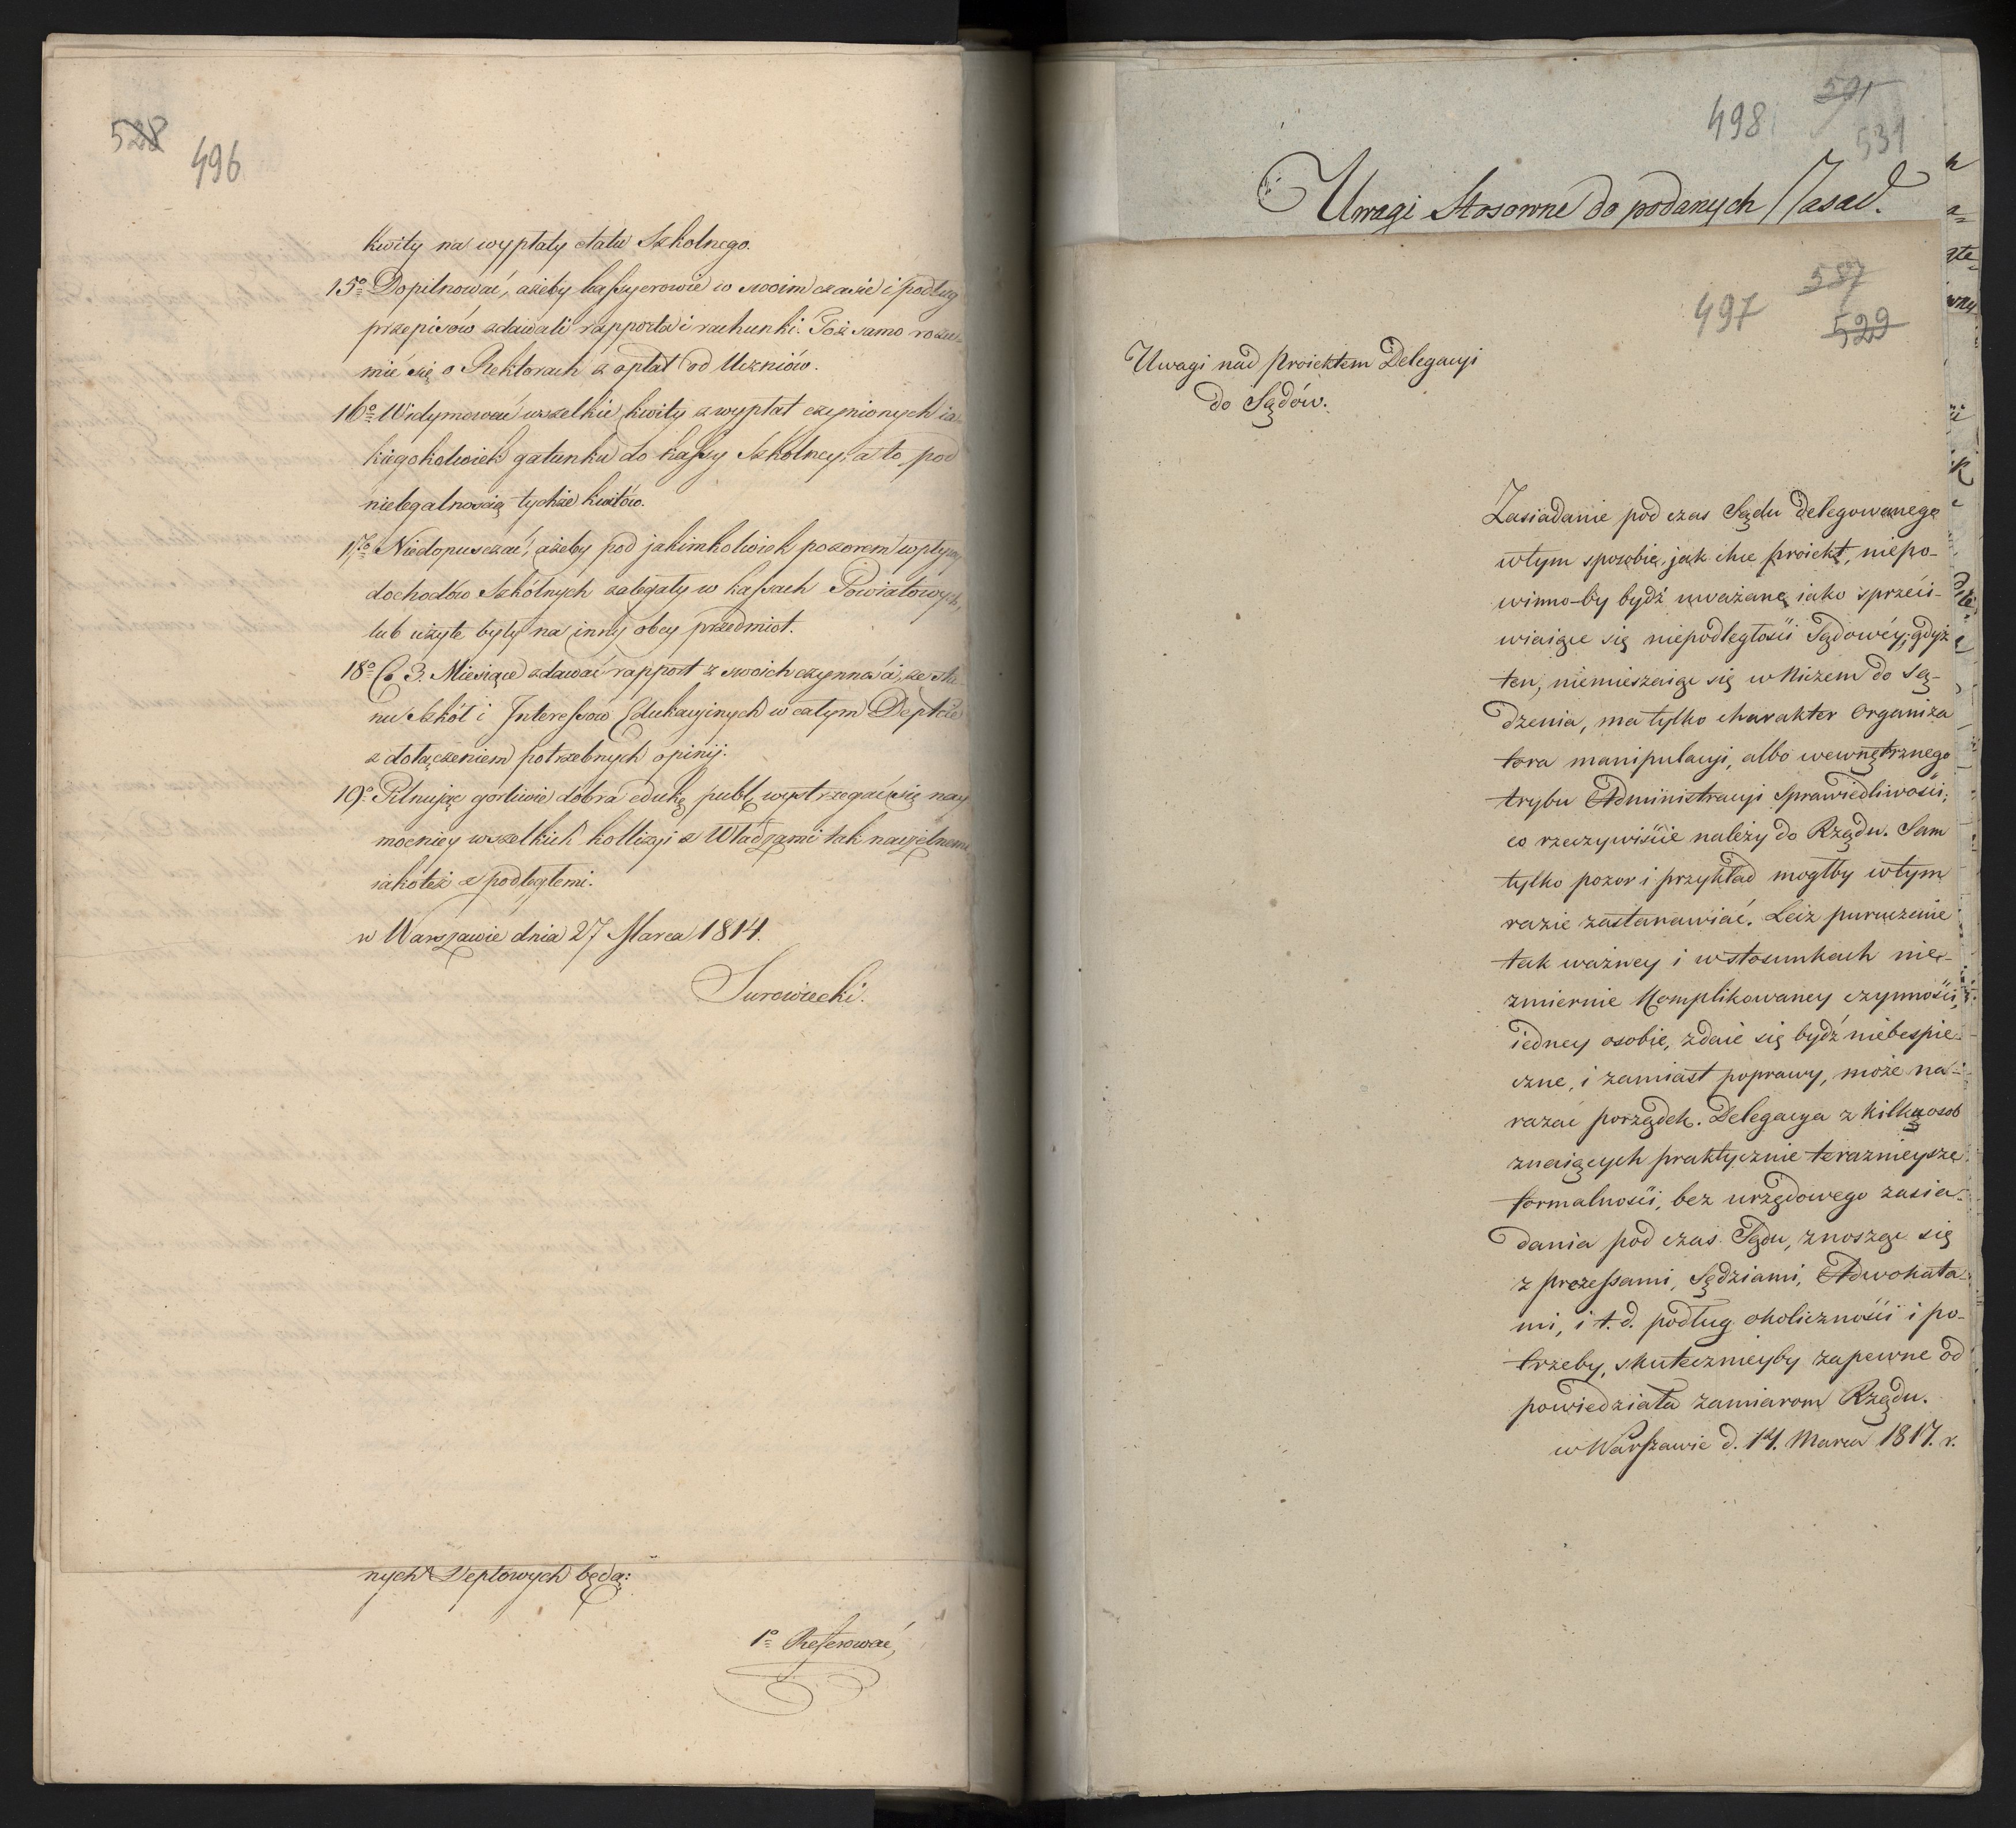 528
496
kwity na wypłaty etatu Szkolnego.
15º Dopilnować, ażeby kassyerowie w swoim czasie i podług
przepisów zdawali rapporta i rachunki. Toż samo rozu-
mié się o Rektorach z opłat od Uczniów.
16º Widymować wszelkie kwity z wypłat czynionych ia-
kiegokolwiek gatunku do kassy Szkólney, a to pod
nielegalnością tychże kwitów.
17º Niedopuszczać, ażeby pod jakimkolwiek pozorem wpływy
dochodów Szkólnych zalegały w kassach Powiatowych,
lub użyte były na inny obcy przedmiot.
18º Co 3. Miesiące zdawać rapport z swoich czynności, ze sta-
nu Szkół i Interessów Edukacyinych w całym Deptcie
z dołączeniem potrzebnych opinij.
19º Pilnując gorliwie dobra eduk publ wystrzegać się nay
mocniey wszelkich kollizyi z Władzami tak naczelnemi
iakóteż z podległemi.
w Warszawie dnia 27 Marca 1814.
Surowiecki.
nych Deptowych będą:
1º Referować,
498
531
Uwagi Stosowne do podanych Zasad.
497
529
Uwagi nad proiektem Delegacyi
do Sądów.
Zasiadanie pod czas Sądu delegowanego
w tym sposobie, jak chce proiekt, niepo-
winno-by bydź uważane iako sprzeci-
wiaiące się niepodległości Sądowéy; gdyż
ten, niemieszaiąc się w niczem do Są-
dzenia, ma tylko charakter Organiza
tora manipulacyi, albo wewnętrznego
trybu Administracyi Sprawiedliwości;
co rzeczywiście należy do Rządu. Sam
tylko pozor i przykład mogłby w tym
razie zastanawiać. Lecz poruczenie
tak ważney i w stosunkach nie-
zmiernie komplikowaney czynności,
iedney osobie, zdaie się bydź niebespie-
czne, i zamiast poprawy, może na-
razać porządek. Delegacya z kilku osob
znaiących praktycznie terazniéysze
formalności, bez urzędowego zasia-
dania pod czas Sądu, znosząc się
z prezessami, Sędziami, Adwokata-
mi, i t. d. podług okoliczności i po-
trzeby, skuteczniéyby zapewne od
powiedziała zamiarom Rządu.
w Warszawie d. 14. Marca 1817. r.